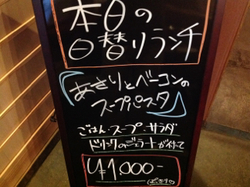 本日の
日替りランチ
あさりとベーコンの
スープパスタ
ごはん・スープ・サラダ
ドリンク のジェラートが付いて
¥1,000-